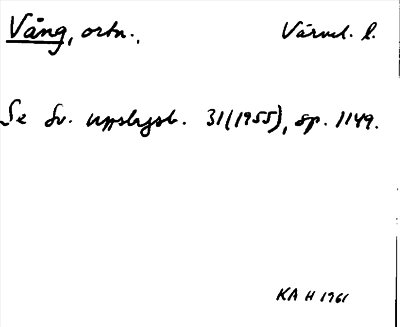 Vång, ortn., Värml. l.
Se Sv. uppslagsb. 31(1955), sp. 1149.
KA H 1961